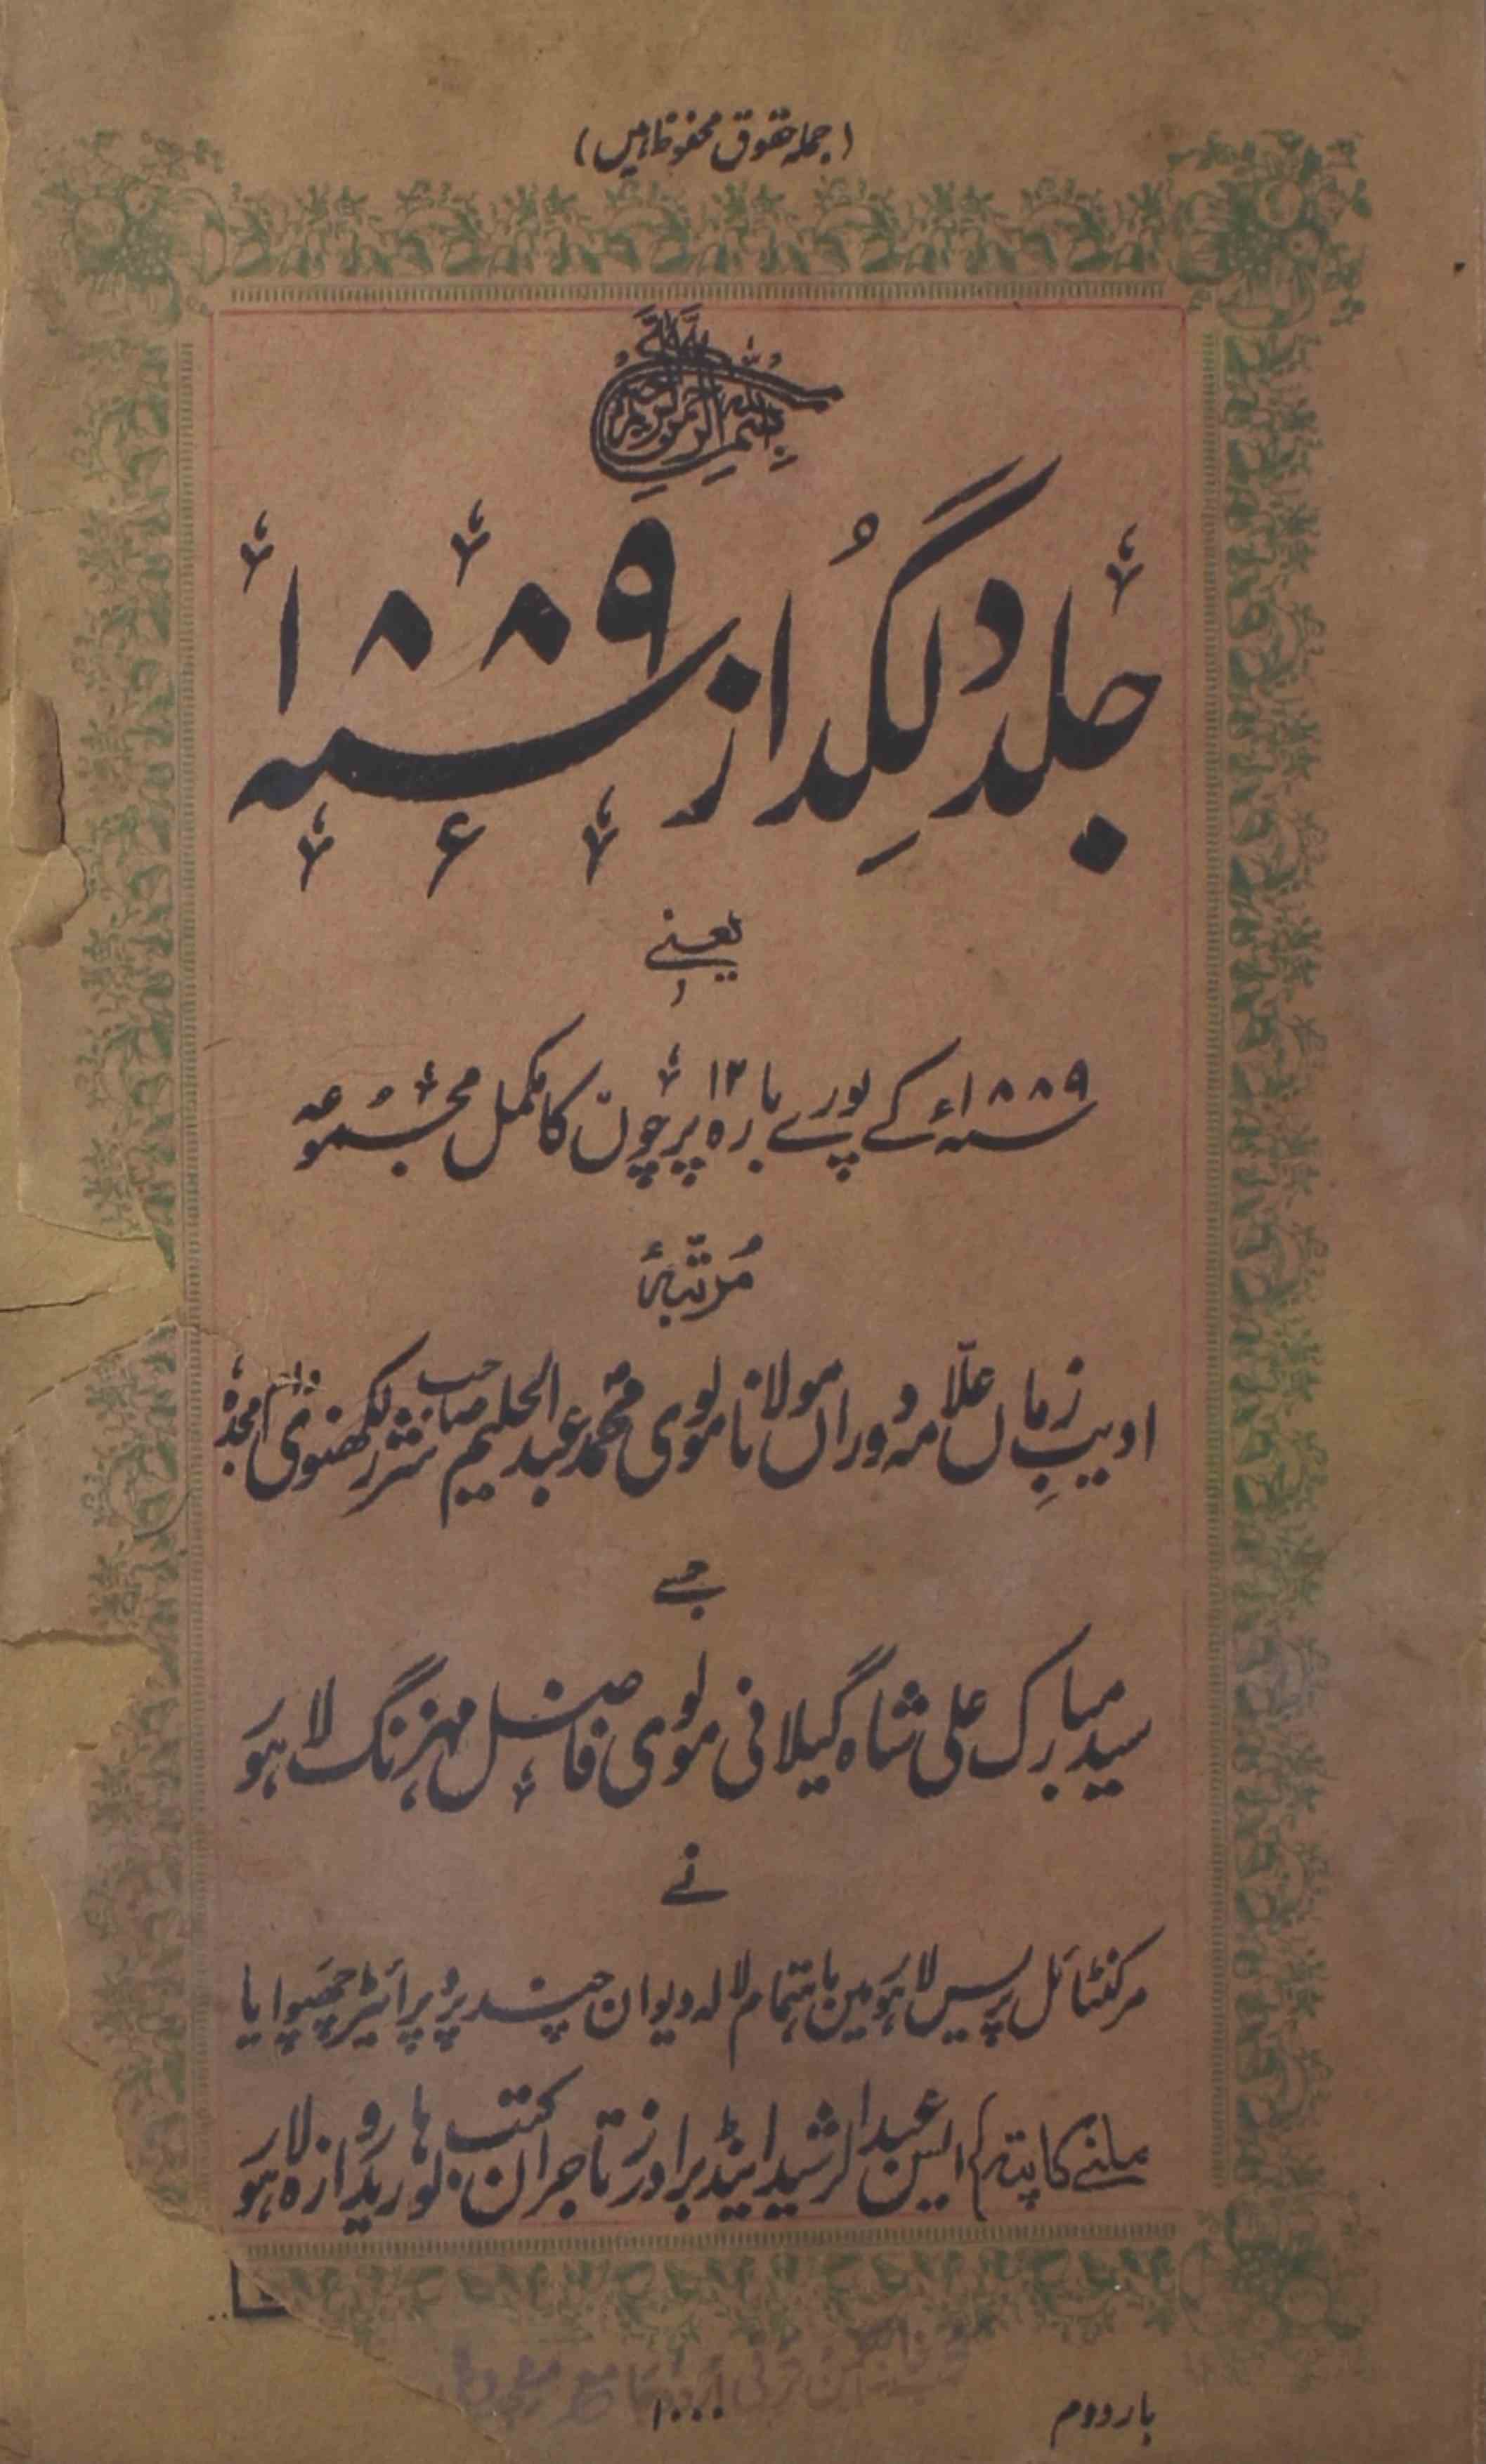 (جملہ حقوق محفوظ ہیں)
بسم اللہ الرحمن الرحیم
جلد دِلگُداز ۱۸۸۹ء
یعنے
۱۸۸۹ء کے پورے بارہ ۱۲ پرچوں کا مکمل مجموعہ
مُرتّبہٴ
ادیبِ زماں علّامہ دوراں مولانا مولوی محمّد عبد الحلیم صاحب شرر لکھنوی دام مجدہٗ
جسے
سید مبارک علی شاہ گیلانی مولوی فاضل مہزنگ لاہور
نے
مرکنٹائل پریس لاہور میں باہتمام لالہ دیوان چند پروپرائیٹر چھپوایا
ملنے کا پتہ ایس عبد الرشید اینڈ برادرز تاجران کتب لوہاریدروازہ لاہور
بار دوم
۱۰۰۰